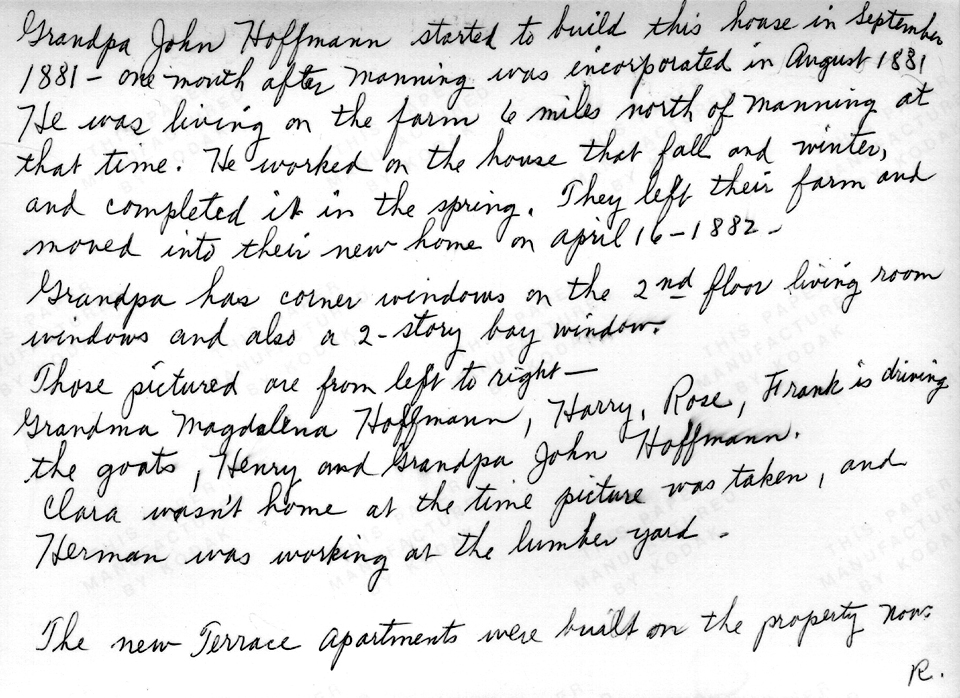 Grandpa John Hoffmann started to build this house in September
1881 - one month after Manning was incorporated in August 1881
He was living on the farm 6 miles north of Manning at
that time. He worked on the house that fall and winter,
and completed it in the spring. They left their farm and
moved into their new home on April 16 - 1882 -
Grandpa has corner windows on the 2nd floor living room
windows and also a 2-story bay window.
Those pictured are from left to right -
Grandma Magdalena Hoffmann, Harry, Rose, Frank is driving
the goats, Henry and Grandpa John Hoffmann.
Clara wasn't home at the time picture was taken, and
Herman was working at the lumber yard -
The new Terrace Apartments were built on the property now
R.
THIS PAPER
MANUFACTURED
BY KODAK